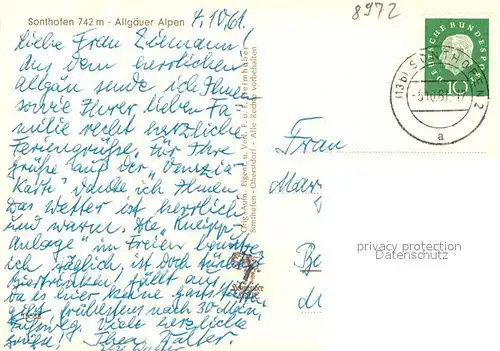 Sonthofen 742 m - Allgäuer Alpen
4.10.61.
8972
Liebe Frau
aus dem herrlichen
Allgäu sende ich Ihnen
sowie Ihrer lieben Fa-
milie recht herzliche
Feriengrüße. Für Ihre
Grüße auf der "Venezia-
Karte" danke ich Ihnen.
Das Wetter ist herrlich
und warm. Die "Kneipp-
anlage" im Freien
ich täglich, ist doch
Biertrinken, fällt aus
da es hier keine
gibt frühestens nach 30 Min.
Fußweg. Viele herzliche
Grüße! Ihr
Orig.-Aufn. Eigent. u. Verl. J. u. F. Heimhuber
Sonthofen - Oberstdorf - Alle Rechte vorbehalten
Heimhuber
DEUTSCHE BUNDESPOST
10
(13b) SONTHOFEN 2
a
Frau
privacy protection
Datenschutz